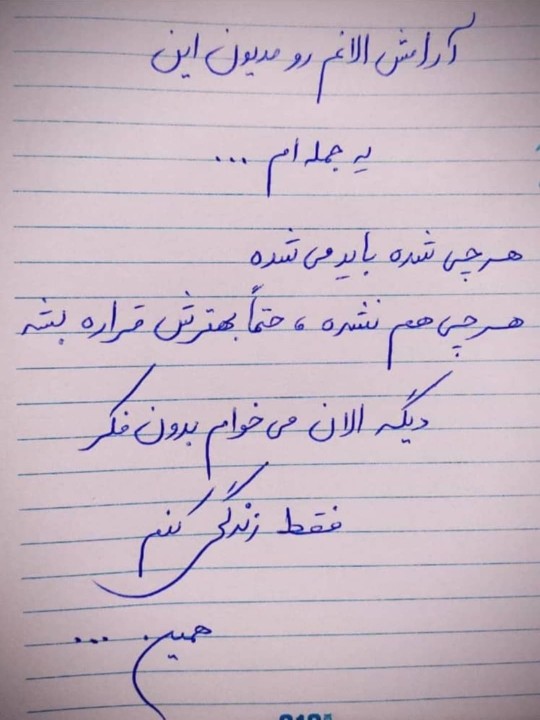 آرامش الانم رو مدیون این
یه جمله ام ...
هر چی شده باید می شده
هر چی هم نشده ، حتماً بهترش قراره بشه
دیگه الان می خوام بدون فکر
فقط زندگی کنم
همین ...